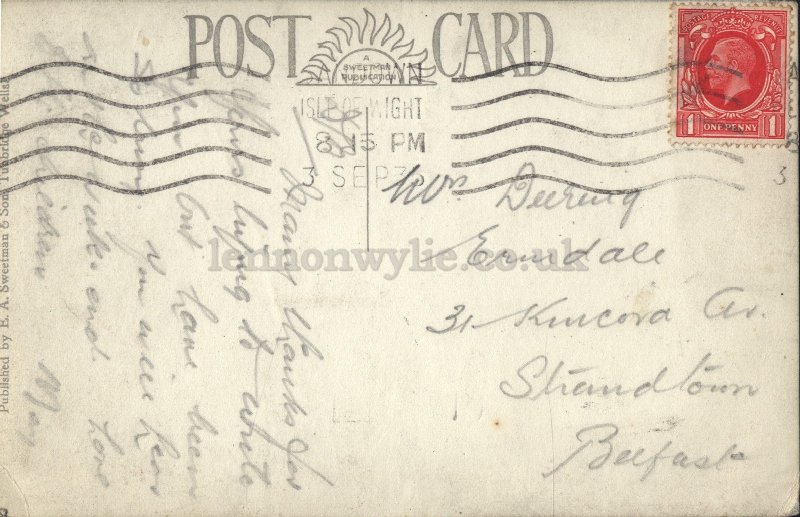 POST CARD
A
SWEETMAN
PUBLICATION
ISLE OF WIGHT
8.15 PM
3 SEP 3
POSTAGE REVENUE
1 1
ONE PENNY
3
Mrs Deering
Erindale
31 Kincora Av.
Strandtown
Belfast
Many thanks for
yours hoping to write
you but have been
so busy. You were here
at the week-end. Love
children May
Published by E. A. Sweetman & Son, Tunbridge Wells
lennonwylie.co.uk